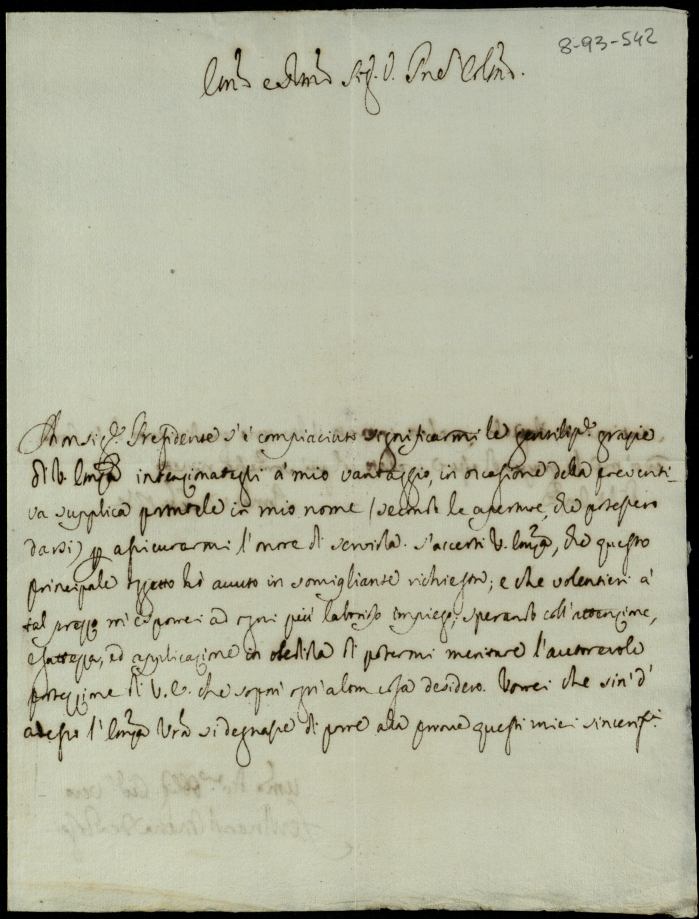 8-93-542
e Sig.
Monsig.r Presidente s'è compiaciuto significarmi le gentiliss.e grazie
di V. Em.za intenzionategli à mio vantaggio, in occasione dela preventi-
va supplica portatele in mio nome (secondo le aperture, che potessero
darsi) assicurarmi l'onore di servirla. S'accerti V. Em.za, che questo
principale oggetto hò avuto in somigliante richiesta; e che volentieri à
tal prezzo mi esporrei ad ogni più laborioso impiego; sperando coll'attenzione,
esattezza, ed applicazione in obedirla di potermi meritare l'autorevole
protezzione di V. E. che sopra ogn'altra cosa desidero. Vorrei che sin d'
adesso l'Em.za Vra si degnasse di porre ala prova questi miei sinceriss.i